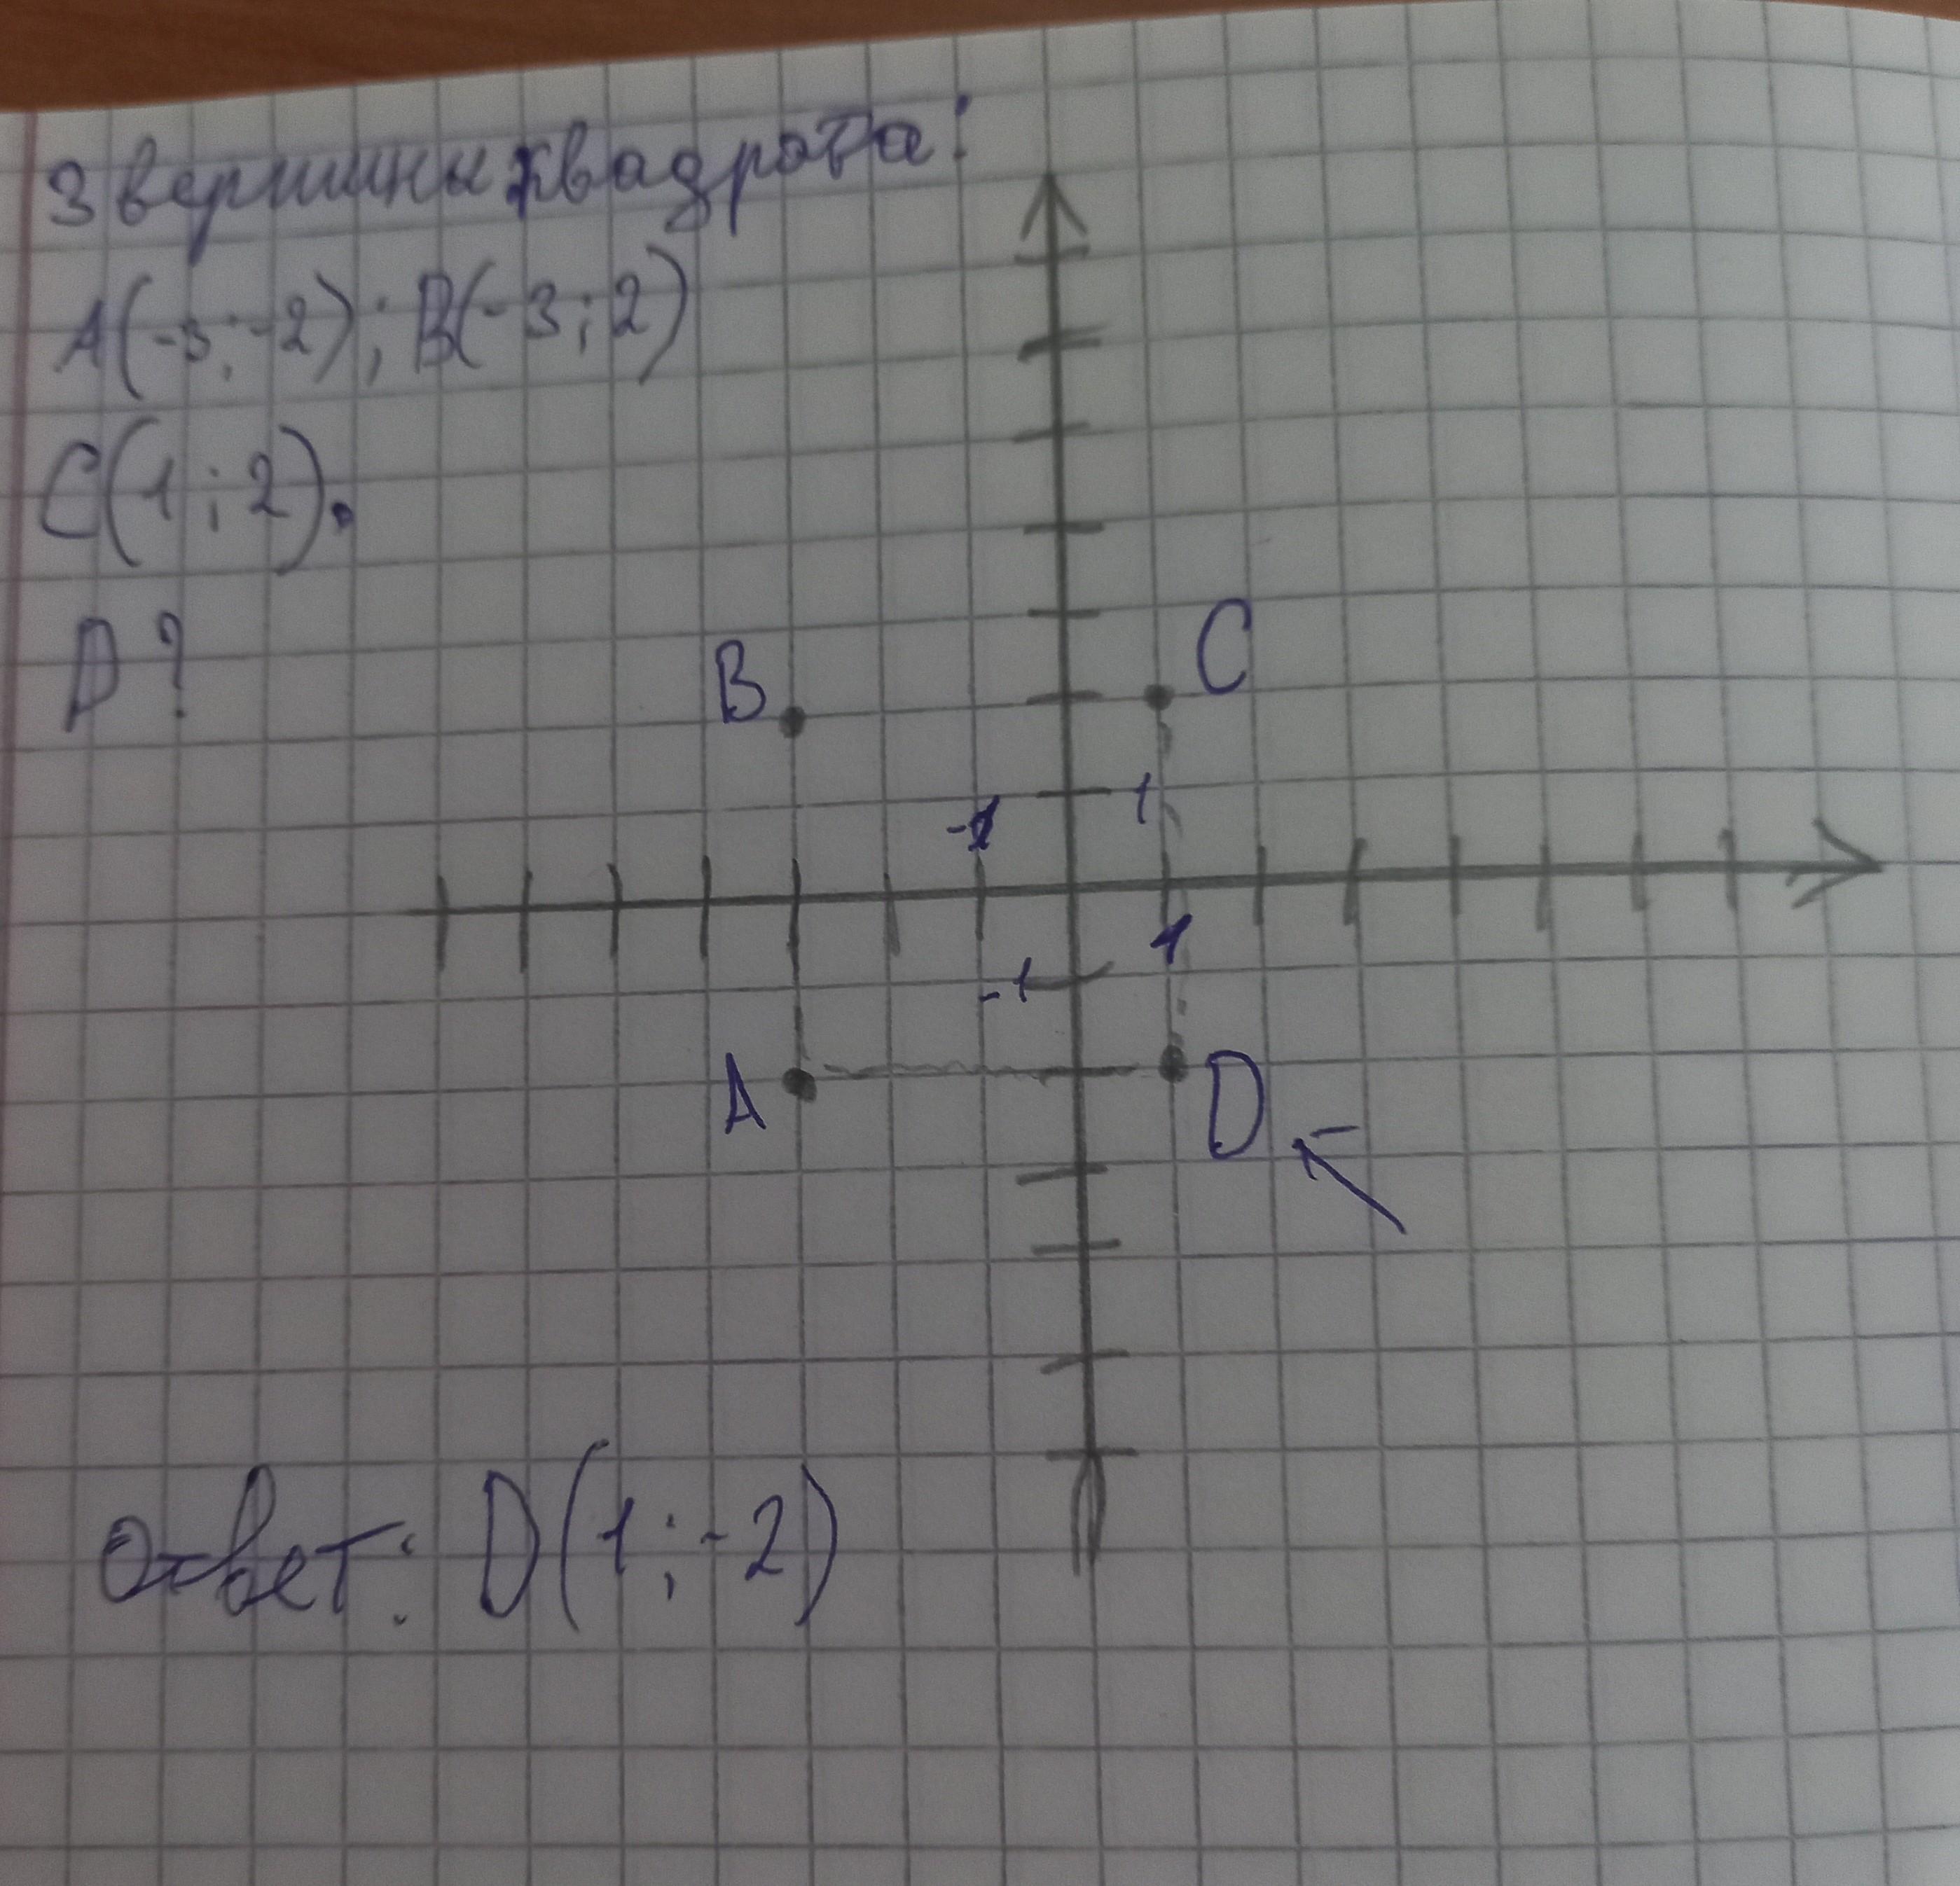 3 вершины квадрата:
A(-3;-2); B(-3;2)
C(1;2).
D?
B
C
-1
1
1
-1
A
D
Ответ: D(1;-2)